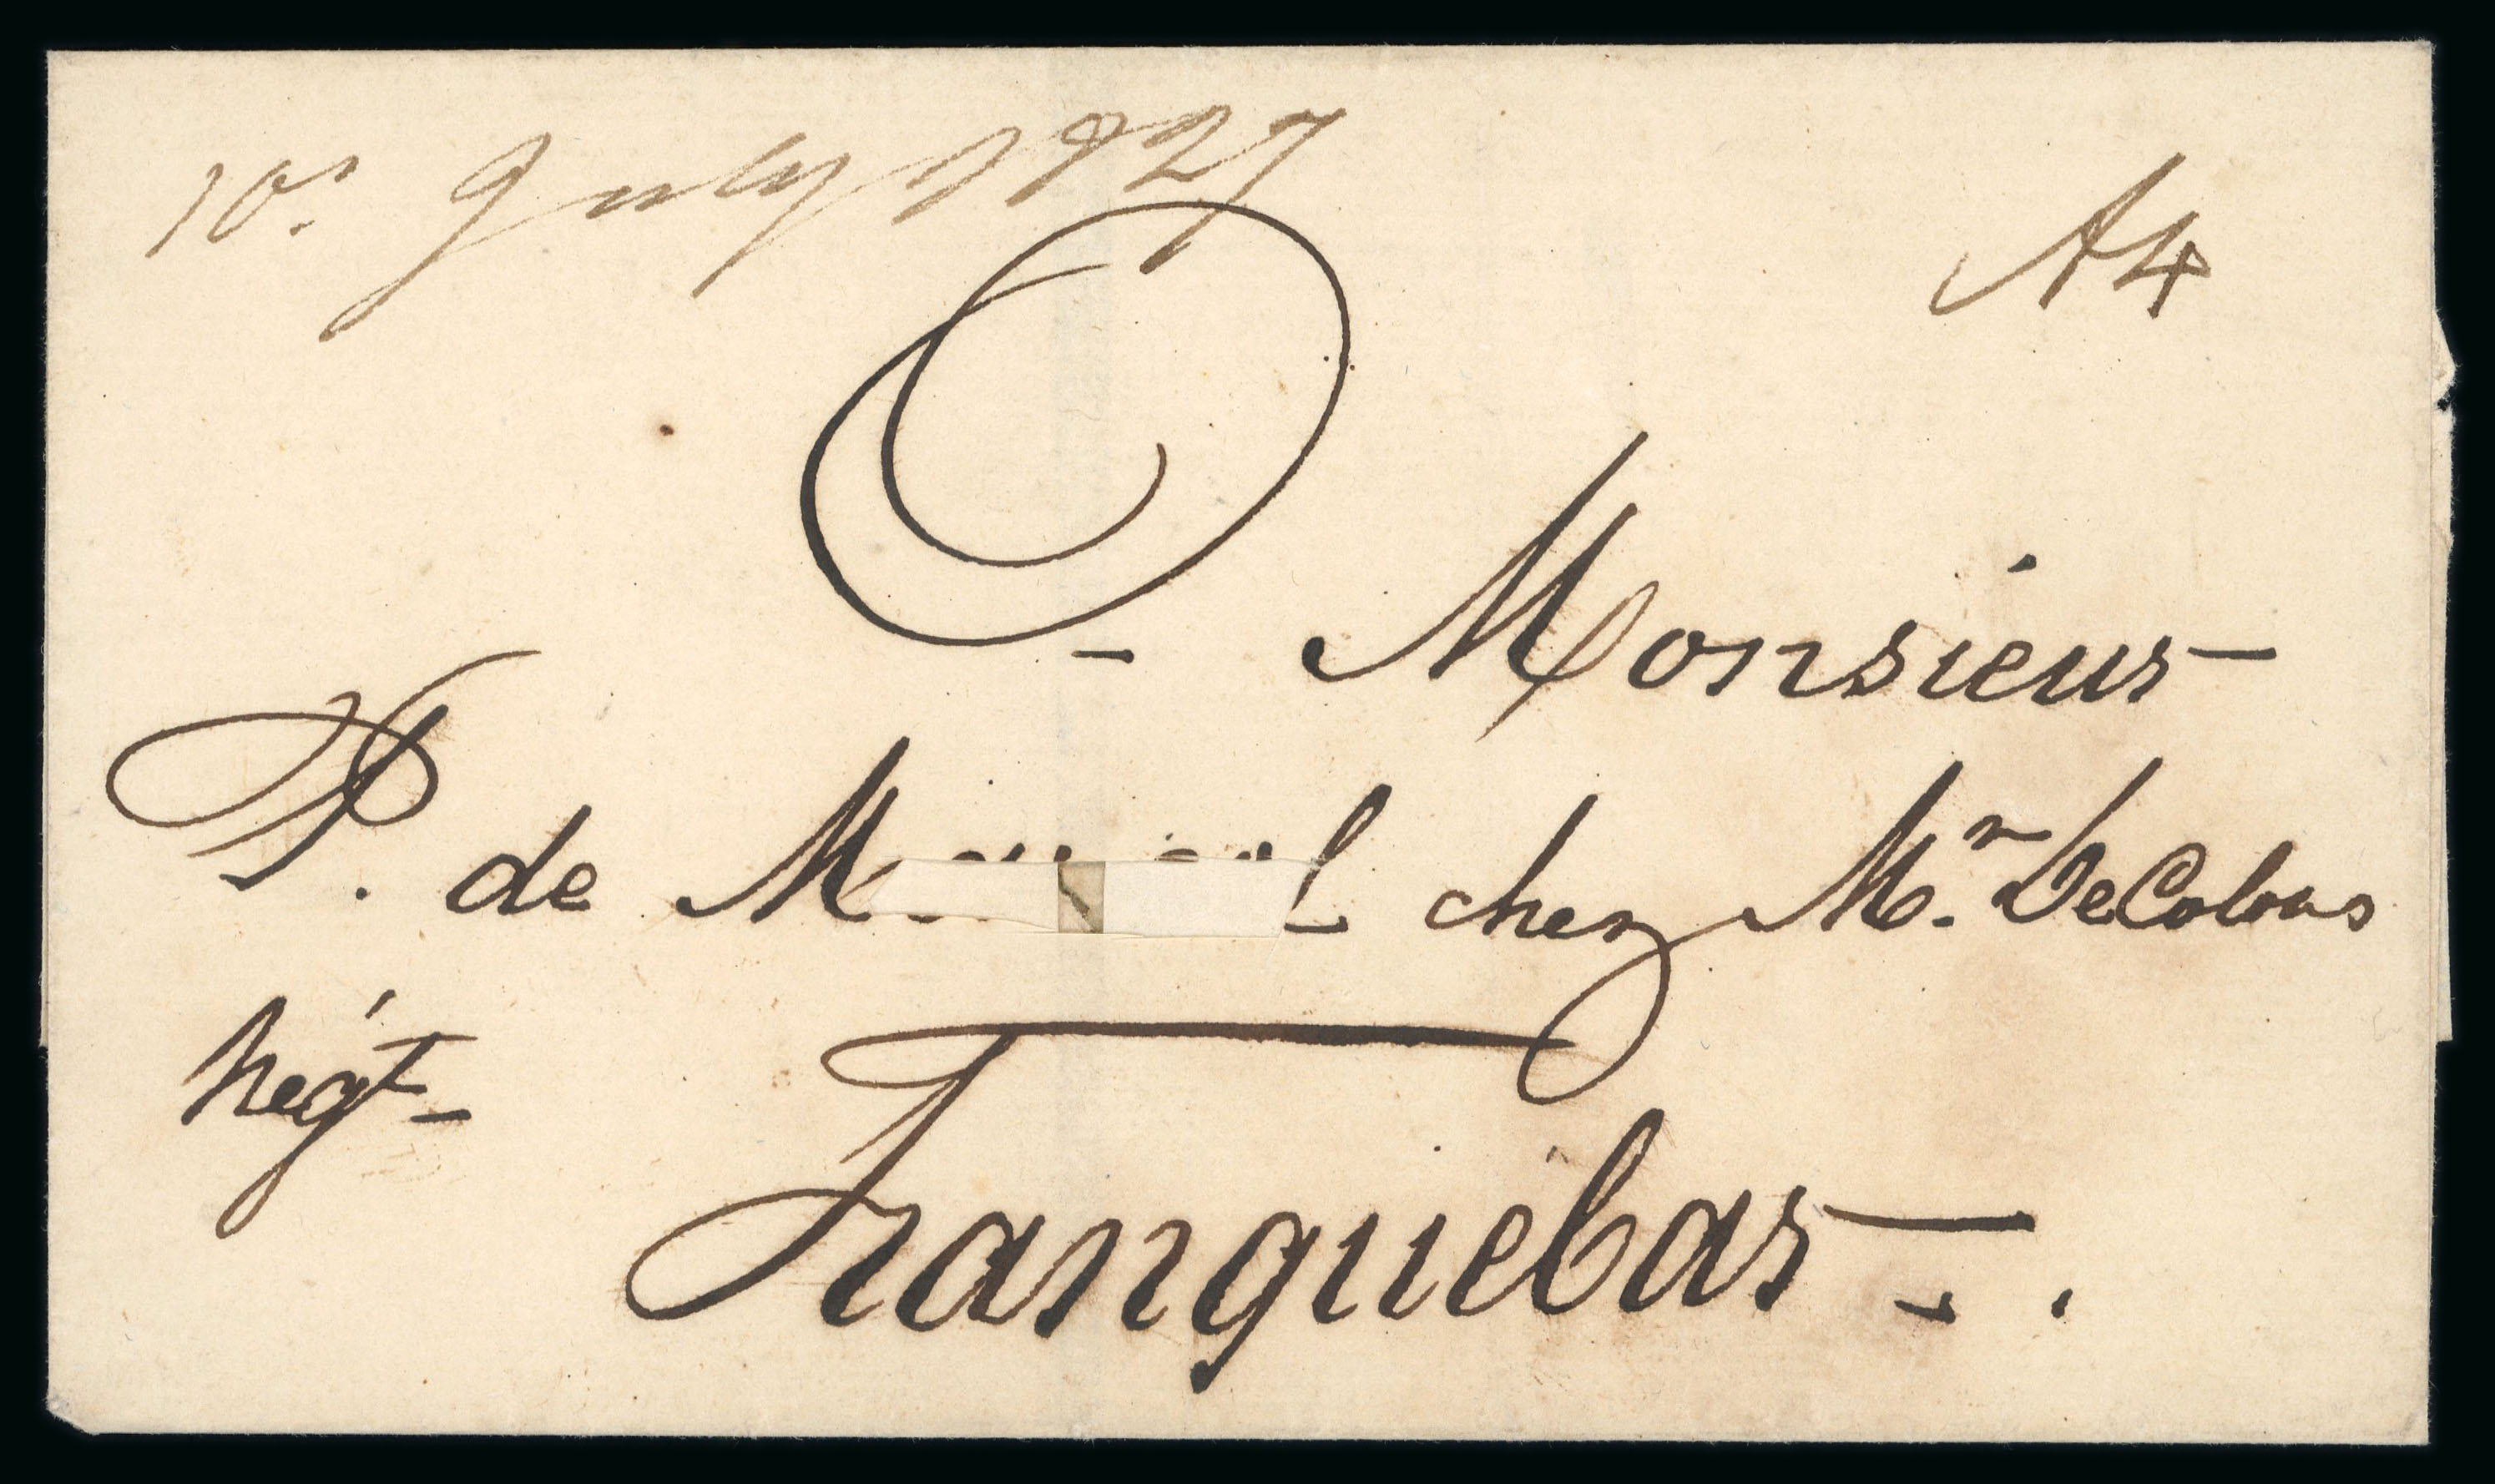 10. July 1827
A4
Monsieur
P. de chez Mr. DeColons
Négt
Tranquébar